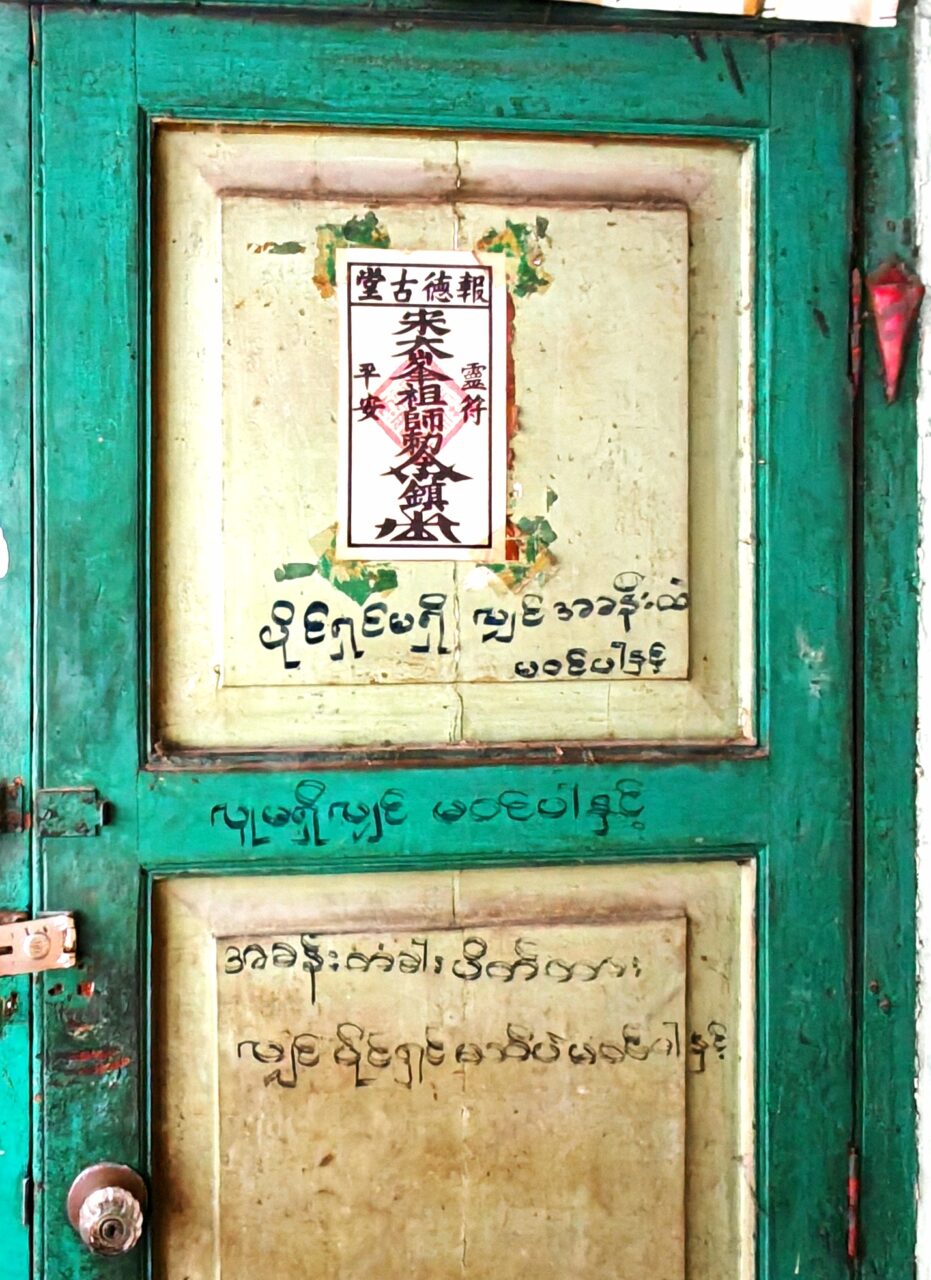 報德古堂
靈符
宋大峯祖師勅令鎮
平安
ပိုင်ရှင်မရှိ လျှင် အခန်းထဲ
မဝင်ပါနှင့်
လူမရှိလျှင် မဝင်ပါနှင့်
အခန်းတံခါး ပိတ်ထား
လျှင် ပိုင်ရှင် မသိပဲ မဝင်ပါနှင့်